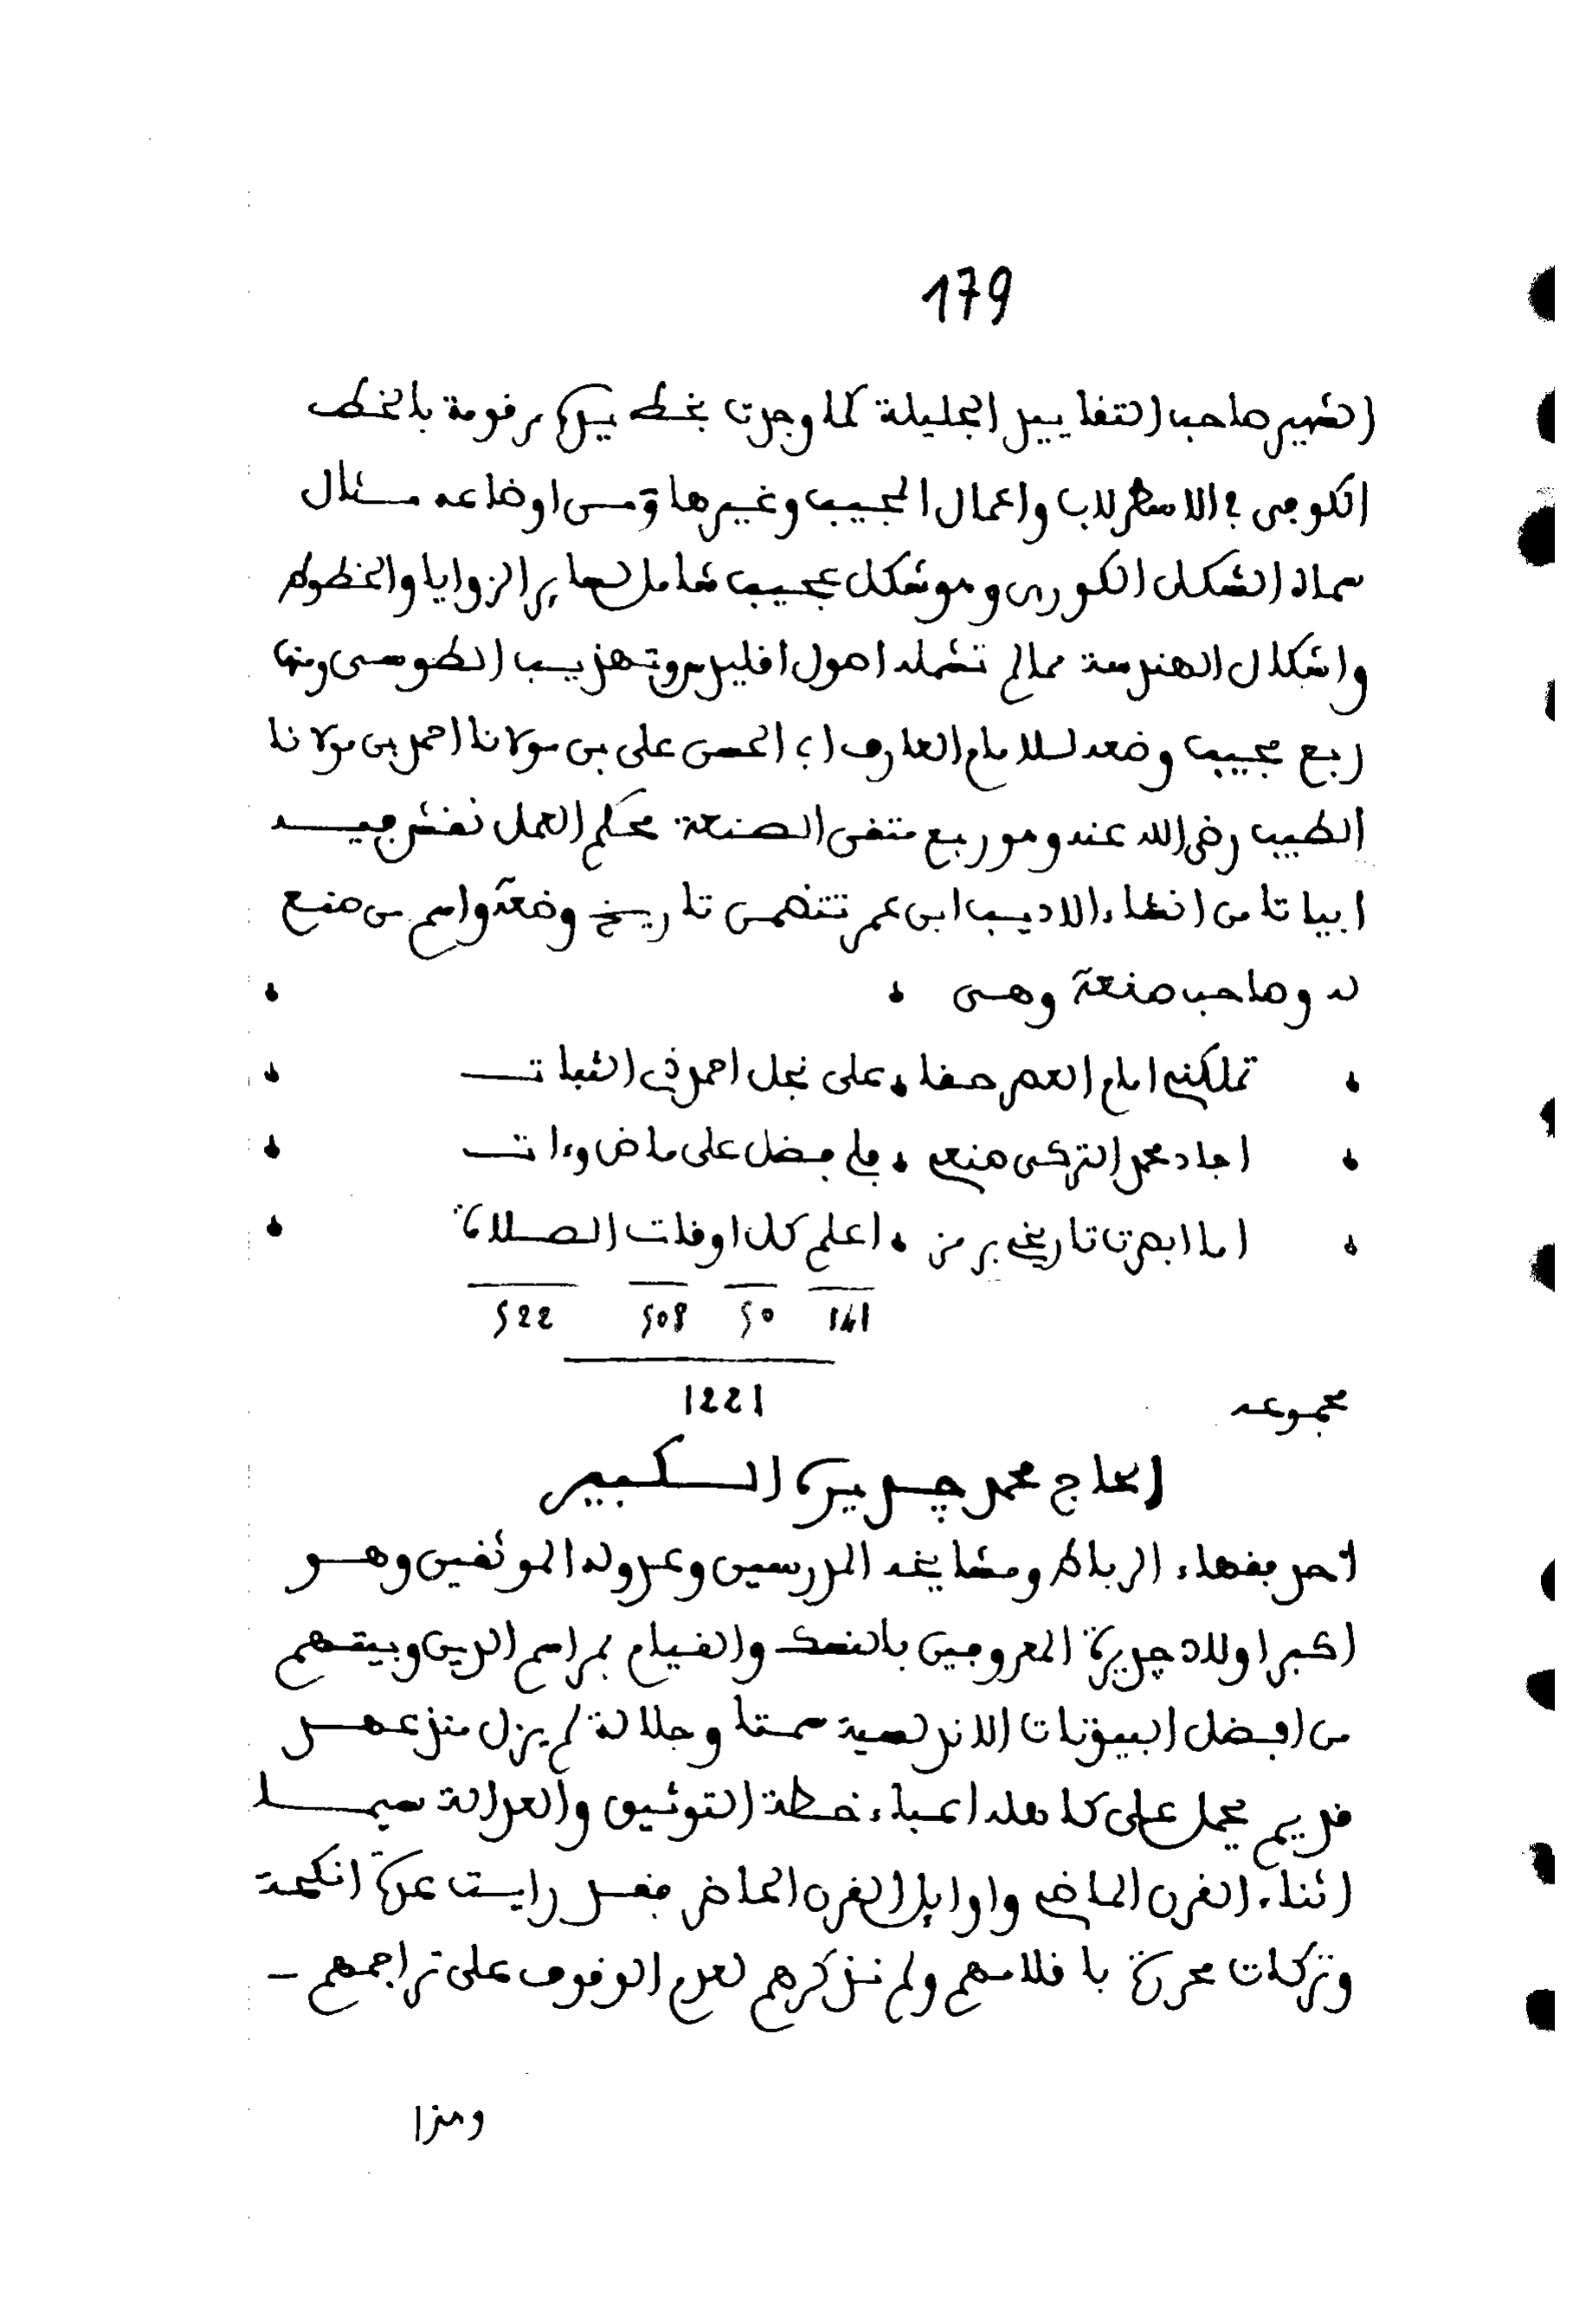 179
الشهير صاحب التقاييد الجليلة كما وجدت بخط يده مرقومة بالخط
الكوفي في الاسطرلاب واعمال الجيب وغيرها ومن اوضاعه مسئال
سماه الشكل الكورى وهو شكل عجيب شامل لعلم الزوايا والخطوط
واشكال الهندسة مما لم تشمله اصول اقليدس وتهذيب الطوسى ومنها
ربع مجيب وضعه للامام العارف ابي الحسن على بن مولانا احمد بن مولانا
الطيب رضي الله عنه وهو ربع متقن الصنعة محكم العمل نقش فيه
ابياتا من انشاء الاديب ابن عمر تتضمن تاريخ وضعه واسم من صنع
له وصاحب صنعته وهى
تملكني امام العصر حقا ، على نجل احمد ذي الثبات
اجاد محمد التركى صنعي ، فلي فضل على ماض وءات
اما ابصرت تاريخي برمز ، اعلم كل اوقات الصلاة
141 50 508 522
مجموعه 1221
الحاج محمد جديرة الكبير
احد فقهاء الرباط ومشايخه المدرسين وعدوله الموثقين وهو
اكبر اولاد جديرة المعروفين بالنسك والقيام بمراسم الدين وبيتهم
من افضل البيوتات الاندلسية سمتا وجلالة لم يزل منذ عهد
قديم يحمل على كاهله اعباء خطة التوثيق والعدالة سيما
اثناء القرن الماضي واوايل القرن الحاضر فقد رايت عدة انكحة
وتركات محررة باقلامهم ولم نذكرهم لعدم الوقوف على تراجمهم –
وهذا